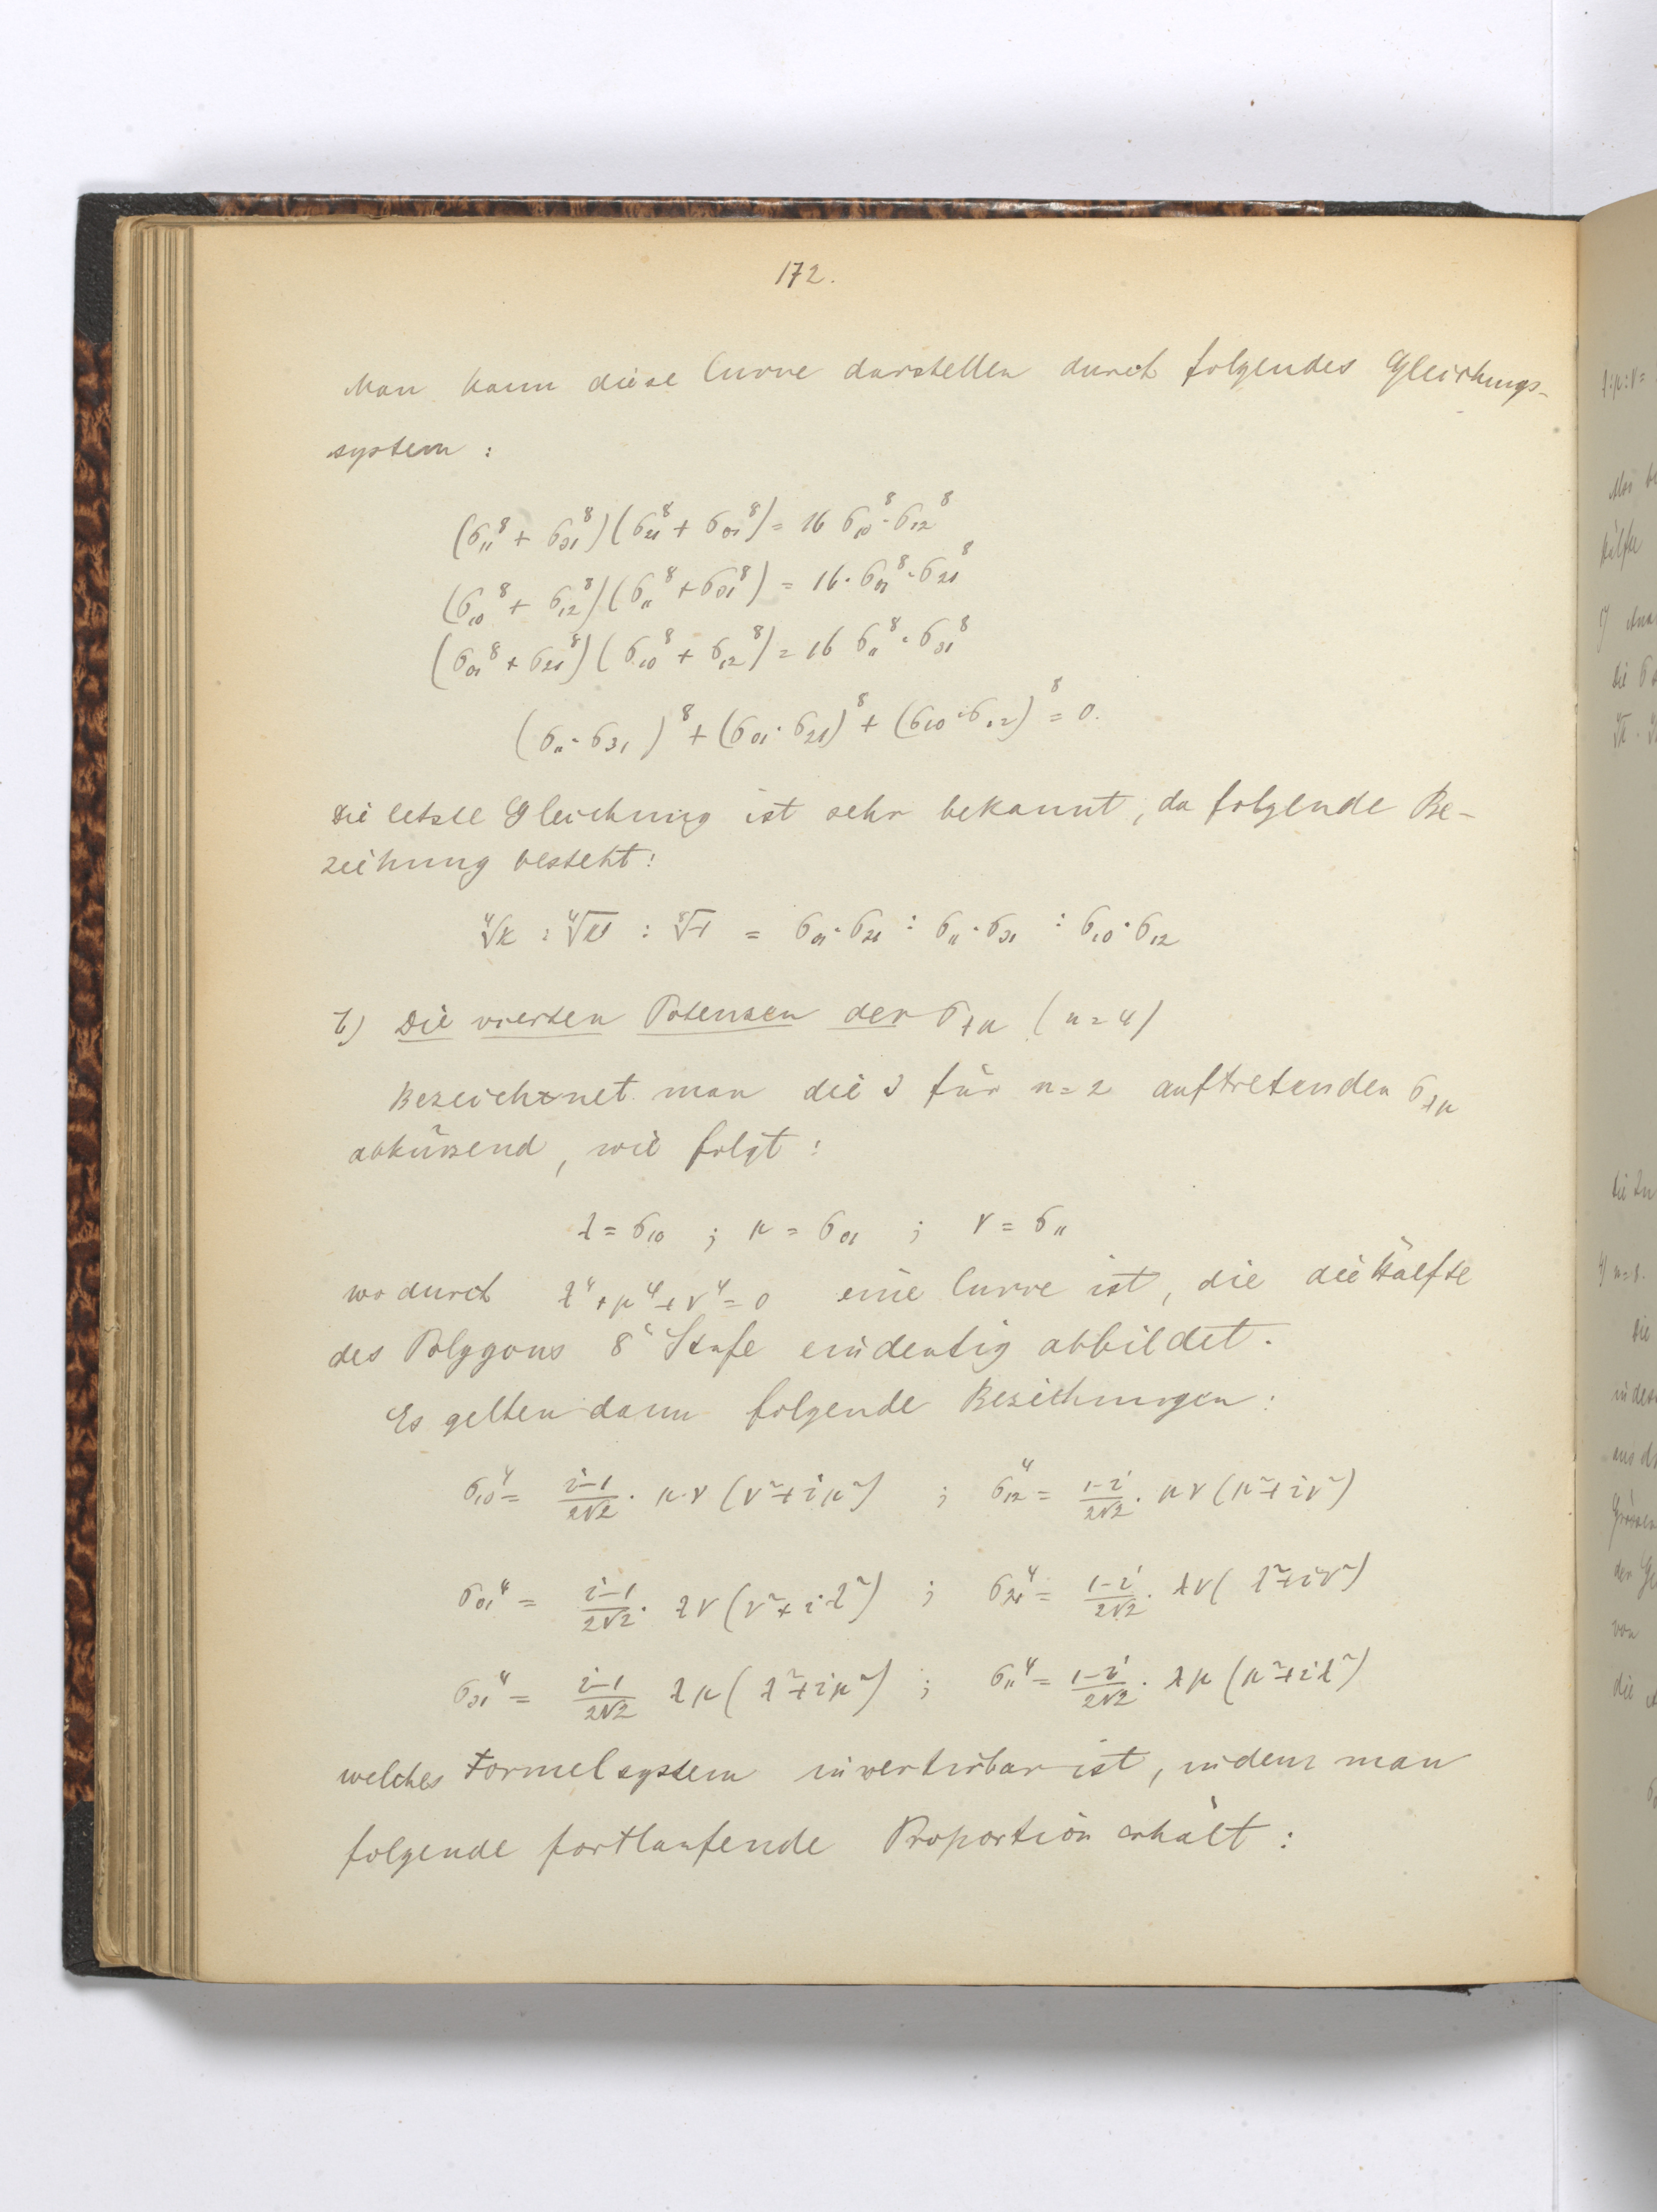 172.
Man kann diese Curve darstellen durch folgendes Gleichungs-
system :
(σ₁₁⁸ + σ₃₁⁸)(σ₂₁⁸ + σ₀₁⁸) = 16 σ₁₀⁸·σ₁₂⁸
(σ₁₀⁸ + σ₁₂⁸)(σ₁₁⁸ + σ₃₁⁸) = 16·σ₀₁⁸·σ₂₁⁸
(σ₀₁⁸ + σ₂₁⁸)(σ₁₀⁸ + σ₁₂⁸) = 16 σ₁₁⁸·σ₃₁⁸
(σ₁₁·σ₃₁)⁸ + (σ₀₁·σ₂₁)⁸ + (σ₁₀·σ₁₂)⁸ = 0.
Die letzte Gleichung ist sehr bekannt, da folgende Be-
ziehung besteht:
⁴√k : ⁴√k' : ⁸√-1 = σ₀₁·σ₂₁ : σ₁₁·σ₃₁ : σ₁₀·σ₁₂
b) Die vierten Potenzen der σλμ (n=4)
Bezeichnet man die 3 für n=2 auftretenden σλμ
abkürzend, wie folgt:
λ = σ₁₀ ; μ = σ₀₁ ; ν = σ₁₁
wodurch λ⁴+μ⁴+ν⁴=0 eine Curve ist, die die Hälfte
des Polygons 8ᵗ Stufe eindeutig abbildet.
Es gelten dann folgende Beziehungen:
σ₁₀⁴ = (i-1)/(2√2) · μ·ν (ν²+iμ²) ; σ₁₂⁴ = (1-i)/(2√2) · μν (μ²+iν²)
σ₀₁⁴ = (i-1)/(2√2) · λν (ν²+iλ²) ; σ₂₁⁴ = (1-i)/(2√2) · λν (λ²+iν²)
σ₃₁⁴ = (i-1)/(2√2) λμ (λ²+iμ²) ; σ₁₁⁴ = (1-i)/(2√2) · λμ (μ²+iλ²)
welches Formelsystem invertirbar ist, indem man
folgende fortlaufende Proportion erhält: